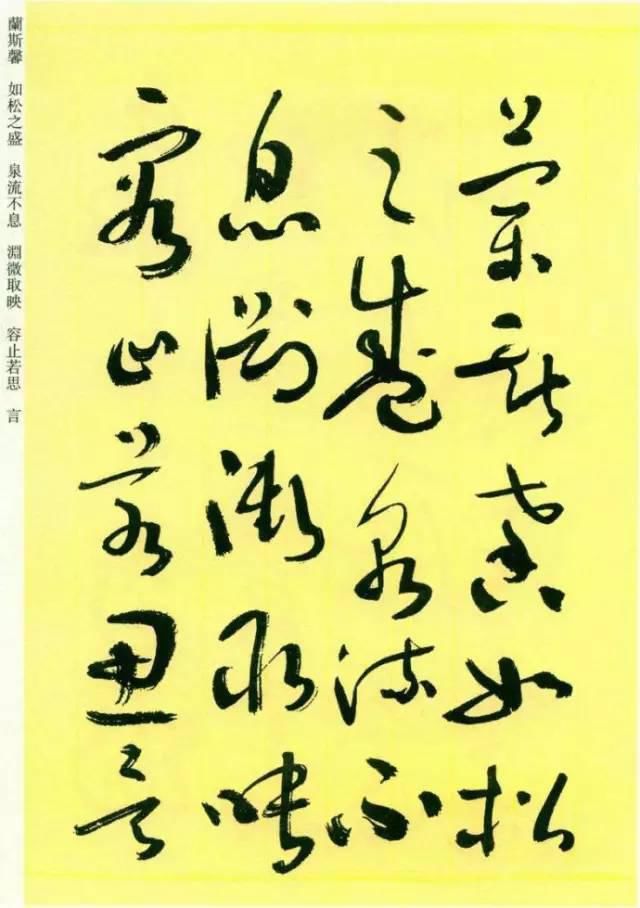 蘭斯馨如松
之盛泉流不
息淵微取映
容止若思言
蘭斯馨　如松之盛　泉流不息　淵微取映　容止若思　言